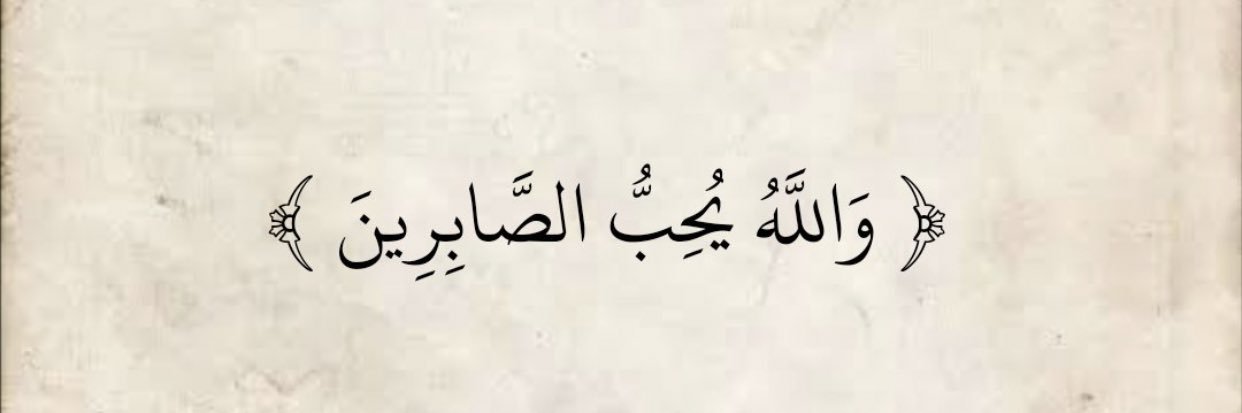 ﴿ وَاللَّهُ يُحِبُّ الصَّابِرِينَ ﴾